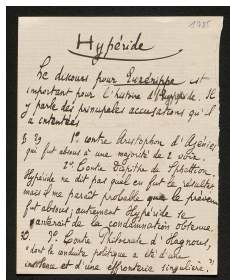 1785
Hypéride
Le discours pour Euxénippe est
important pour l'histoire d'Hypéride. Il
y parle des principales accusations qu'il
a intentées
§ 29 1º. contre Aristophon d'Azénies
qui fut absous à une majorité de 2 voix.
2º. Contre Diopithe de Sphettos.
Hypéride ne dit pas quel en fut le résultat
mais il me paraît probable que le prévenu
fut absous; autrement Hypéride se
vanterait de la condamnation obtenue.
3º. Contre Philocrate d'Hagnous,
"dont la conduite politique a été d'une
insolence et d'une effronterie singulière".